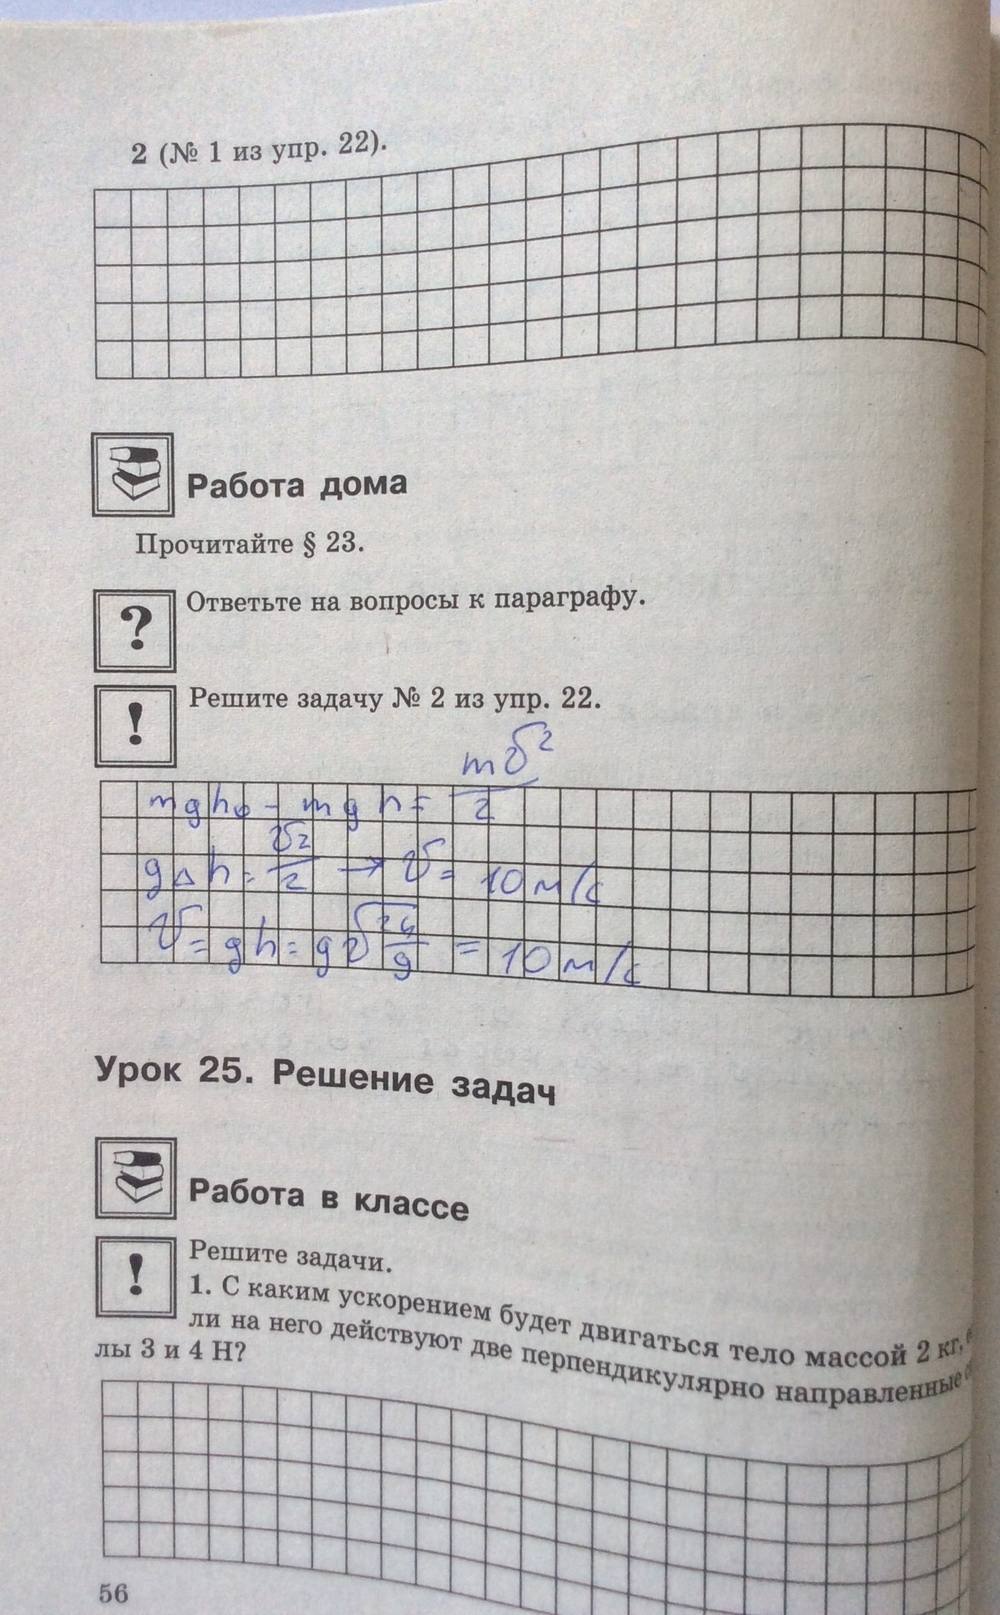 2 (№ 1 из упр. 22).
Работа дома
Прочитайте § 23.
?
Ответьте на вопросы к параграфу.
!
Решите задачу № 2 из упр. 22.
mgh₀ - mgh = mv²/2
g△h = v²/2 → v = 10 м/с
v = gh = g√2h/g = 10 м/с
Урок 25. Решение задач
Работа в классе
!
Решите задачи.
1. С каким ускорением будет двигаться тело массой 2 кг,
ли на него действуют две перпендикулярно направленные
лы 3 и 4 Н?
56